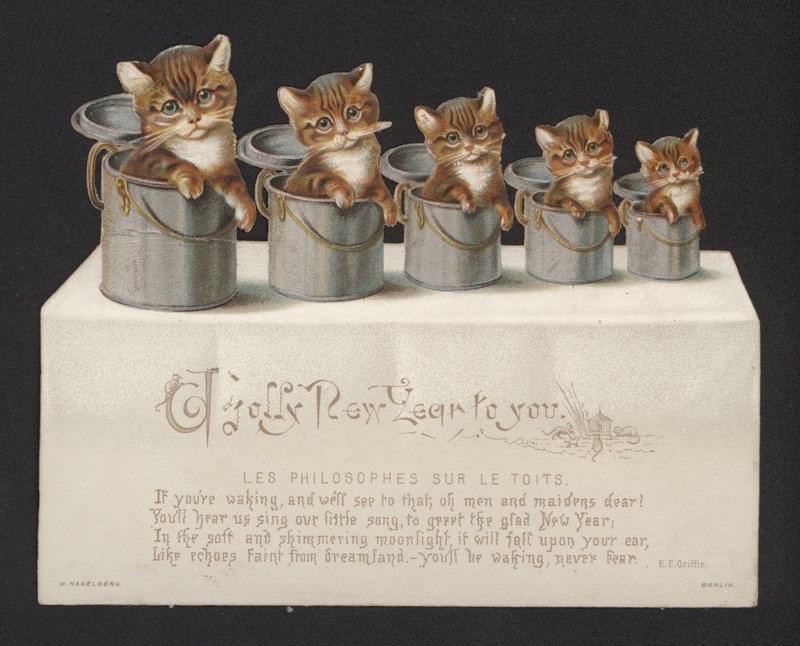 A Jolly New Year to you.
LES PHILOSOPHES SUR LE TOITS.
If you're waking, and we'll see to that, oh men and maidens dear!
You'll hear us sing our little song, to greet the glad New Year;
In the soft and shimmering moonlight, it will fall upon your ear,
Like echoes faint from dreamland.—you'll be waking, never fear.
E.E.Griffin.
W. HAGELBERG.
BERLIN.